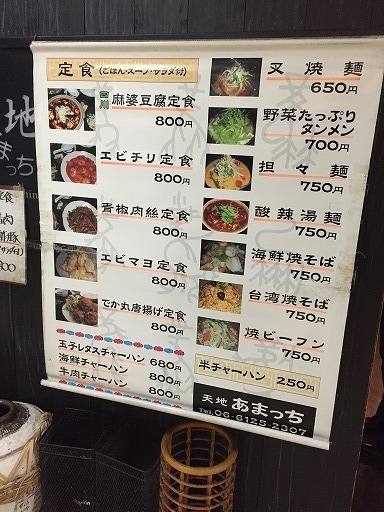 定食（ごはん・スープ・サラダ付）
四川 麻婆豆腐定食
800円
エビチリ定食
800円
青椒肉絲定食
800円
エビマヨ定食
800円
でか丸唐揚げ定食
800円
玉子レタスチャーハン 680円
海鮮チャーハン 800円
牛肉チャーハン 800円
叉焼麺
650円
野菜たっぷり
タンメン
700円
担々麺
750円
酸辣湯麺
750円
海鮮焼そば
750円
台湾焼そば
750円
焼ビーフン
750円
半チャーハン 250円
天地 あまっち
TEL.06-6125-2307
地
まっち
定食
800